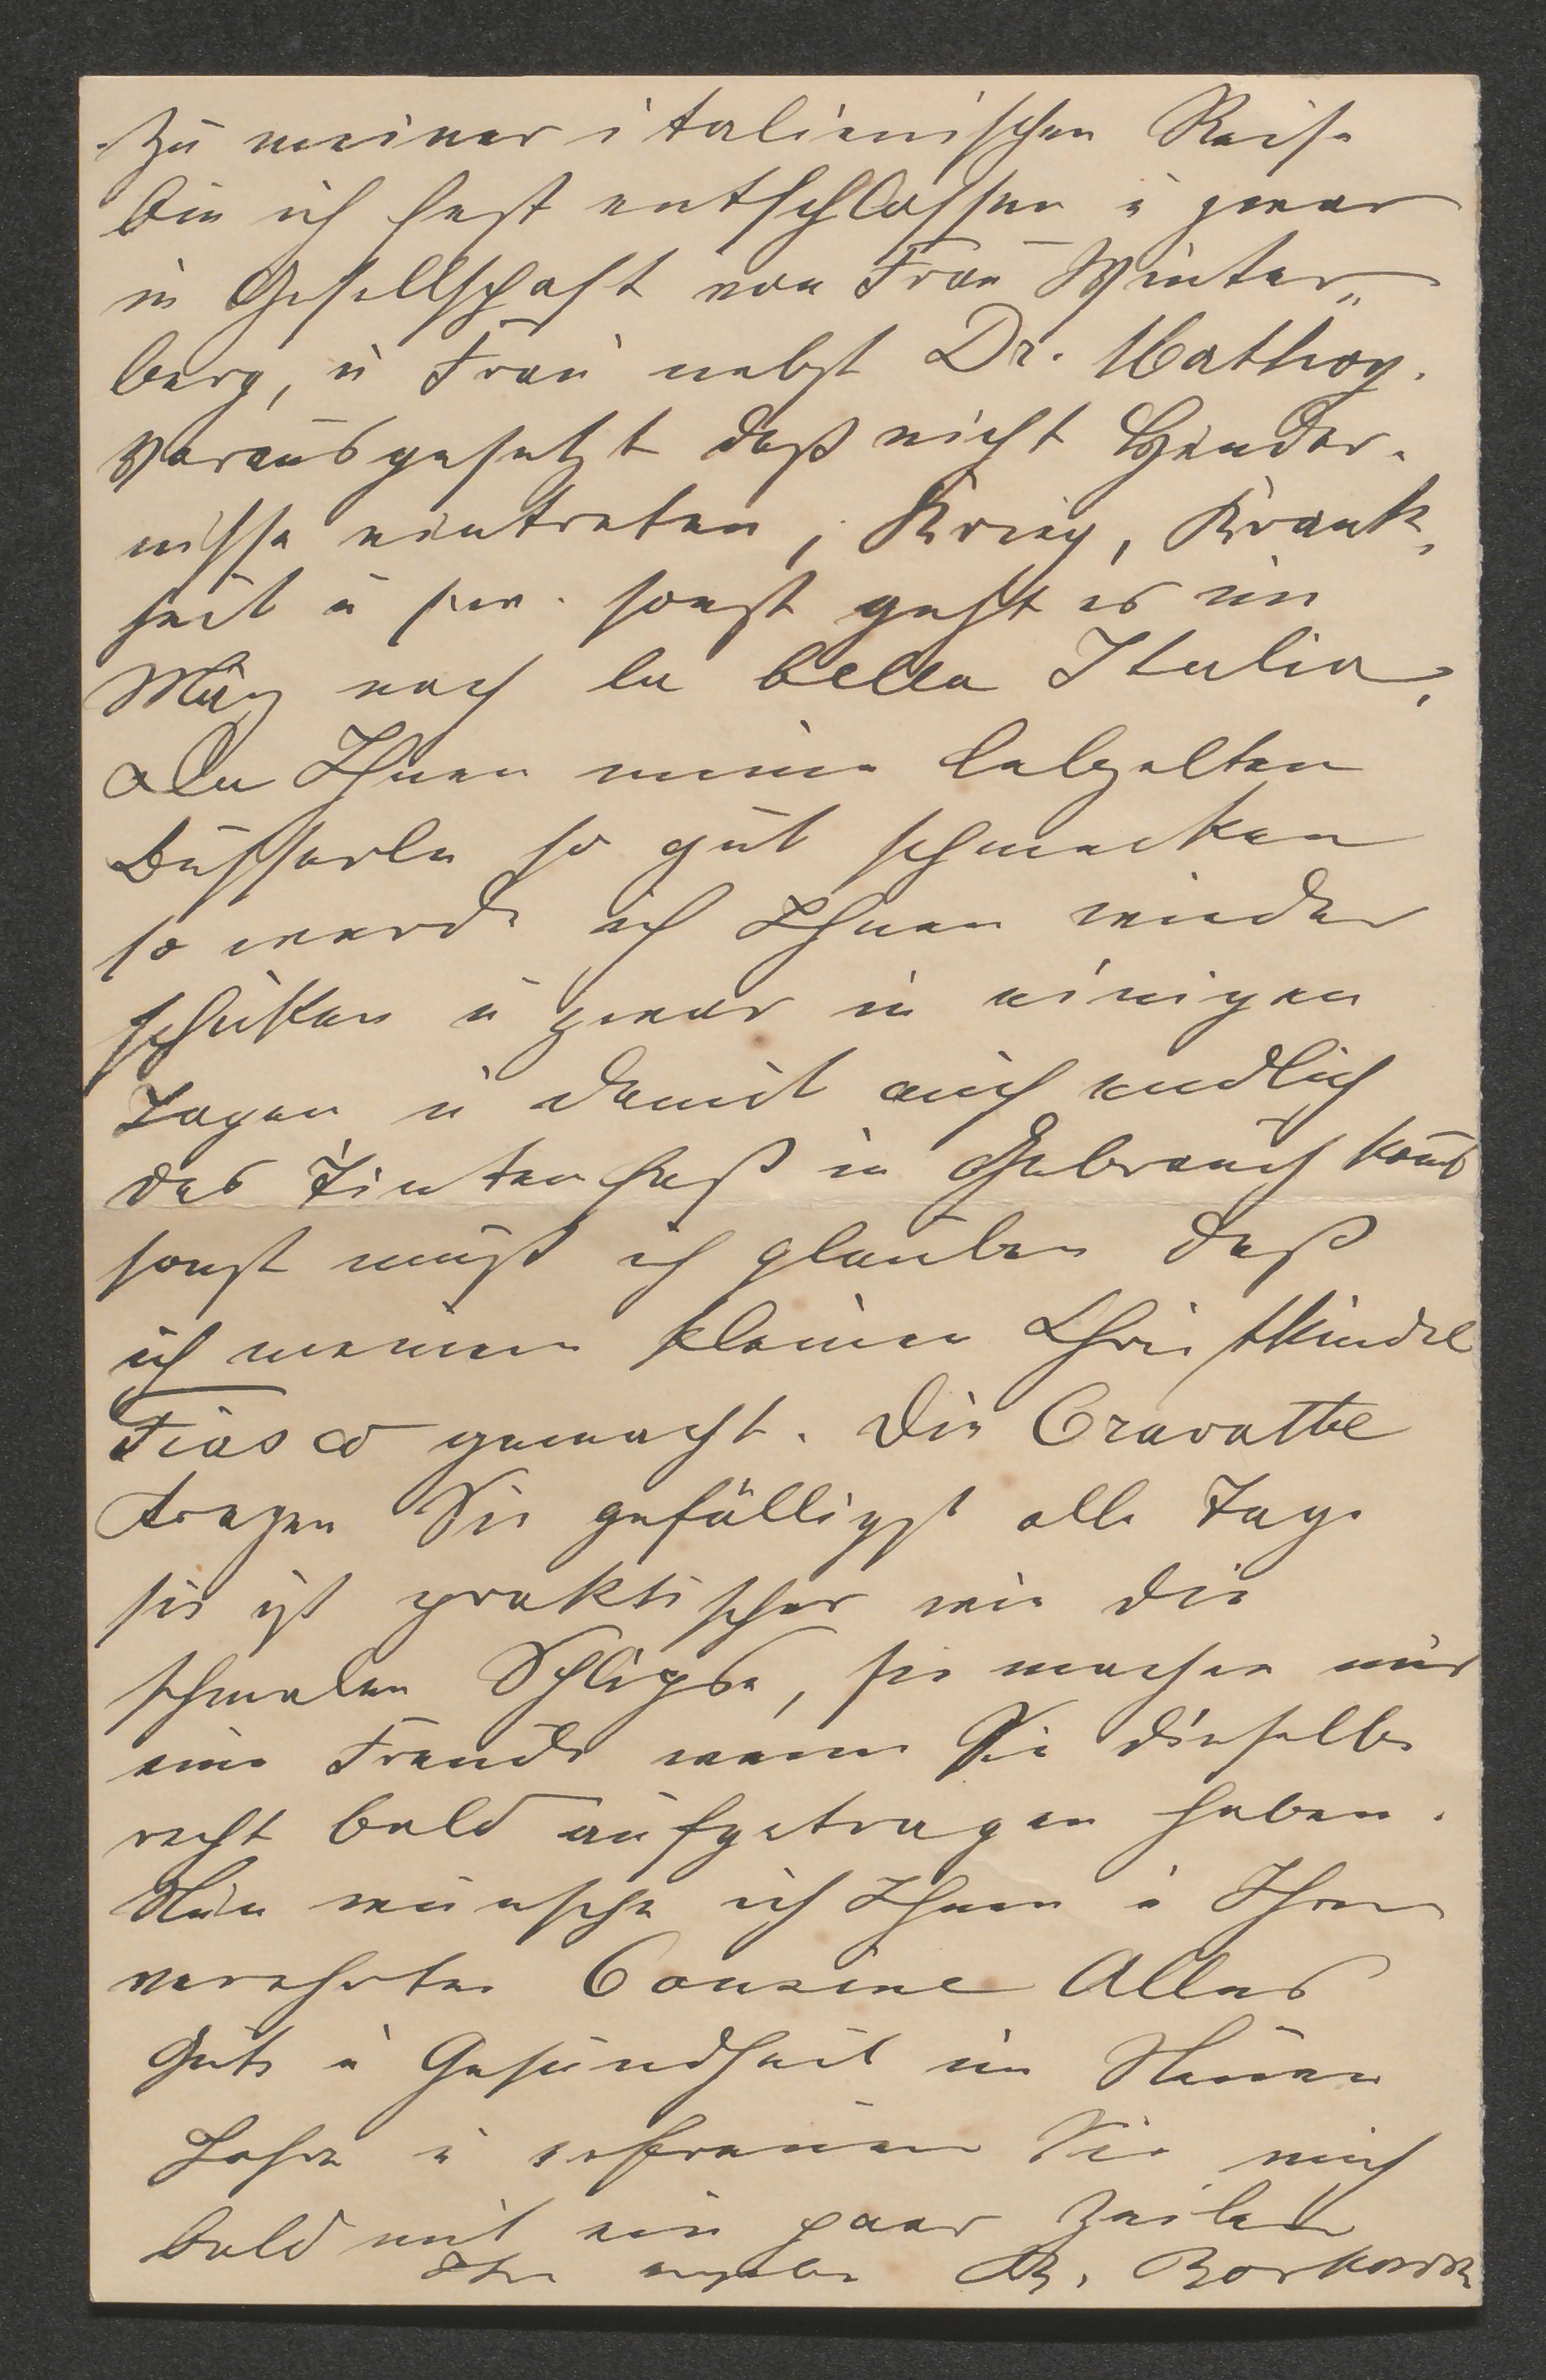 Zu meiner italienischen Reise
bin ich fest entschlossen u zwar
in Gesellschaft von Frau Winter„
berg, u Frau nebst Dr. Mathoy.
Vorausgesetzt daß nicht Hinder-
nisse eintreten, Krieg, Krank,
heit u sonst geht es im
März nach la bella Italia,
Da Ihnen meine lebzelten
Busserln so gut schmecken
so werde ich Ihnen wieder
schicken u zwar in einigen
Tagen u damit auch endlich
das Tintenfaß in Gebrauch komt
sonst muß ich glauben daß
ich meinem kleinen Christkindel
Fiasco gemacht. Die Cravatte
tragen Sie gefälligst alle Tage
sie ist praktischer wie die
schmalen Schlipse, sie machen mir
eine Freude wenn Sie dieselbe
recht bald aufgetragen haben.
Nun wünsche ich Ihnen u Ihrer
verehrten Cousine Alles
Gute u Gesundheit im Neuen
Jahre u erfreuen Sie mich
bald mit ein paar Zeilen
Ihre ergebe B.